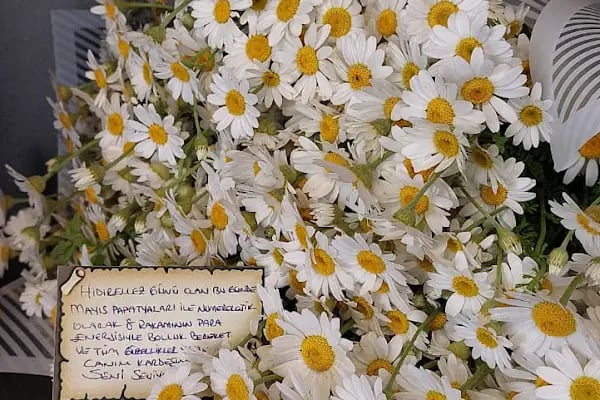 HIDIRELLEZ GÜNÜ OLAN BU GÜNDE
MAYIS PAPATYALARI İLE NUMEROLOJİK
OLARAK 8 RAKAMININ PARA
ENERJİSİYLE BOLLUK BEREKET
VE TÜM GÜZELLİKLER
CANIM KARDEŞİM
SENİ SEVİYORUM